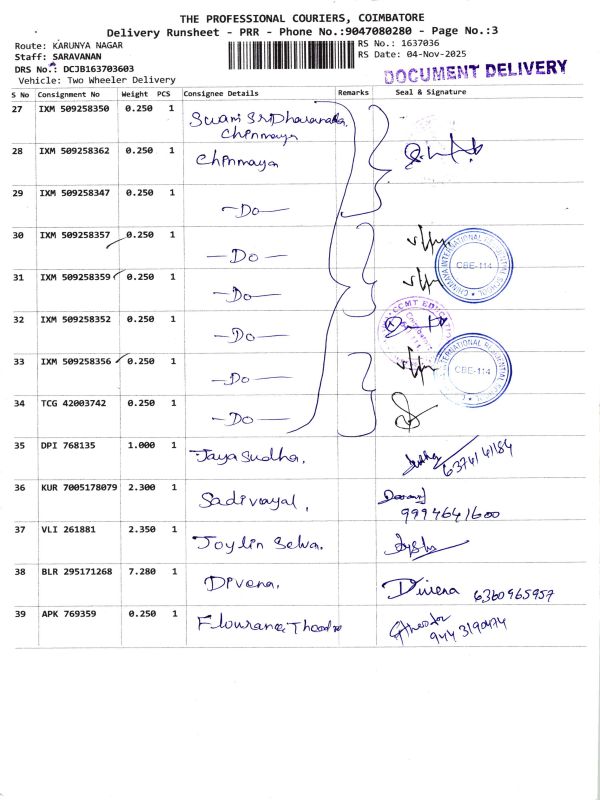 THE PROFESSIONAL COURIERS, COIMBATORE
Delivery Runsheet - PRR - Phone No.:9047080280 - Page No.:3
Route: KARUNYA NAGAR
RS No.: 1637036
Staff: SARAVANAN
RS Date: 04-Nov-2025
DRS No.: DCJB163703603
DOCUMENT DELIVERY
Vehicle: Two Wheeler Delivery
S No Consignment No Weight PCS Consignee Details Remarks Seal & Signature
27 IXM 509258350 0.250 1 Swami
Chinmaya
28 IXM 509258362 0.250 1 Chinmaya
29 IXM 509258347 0.250 1 —Do—
30 IXM 509258357 0.250 1 —Do—
CHINMAYA INTERNATIONAL RESIDENTIAL SCHOOL CBE-114
31 IXM 509258359 0.250 1 —Do—
32 IXM 509258352 0.250 1 —Do—
CCMT EDUCATION
33 IXM 509258356 0.250 1 —Do—
INTERNATIONAL RESIDENTIAL SCHOOL CBE-114
34 TCG 42003742 0.250 1 —Do—
35 DPI 768135 1.000 1 Jaya Sudha.
36 KUR 7005178079 2.300 1 Sadivayal. 9994641600
37 VLI 261881 2.350 1 Joylin Selva.
38 BLR 295171268 7.280 1 Divena. Diviena 6360965957
39 APK 769359 0.250 1
9443190474